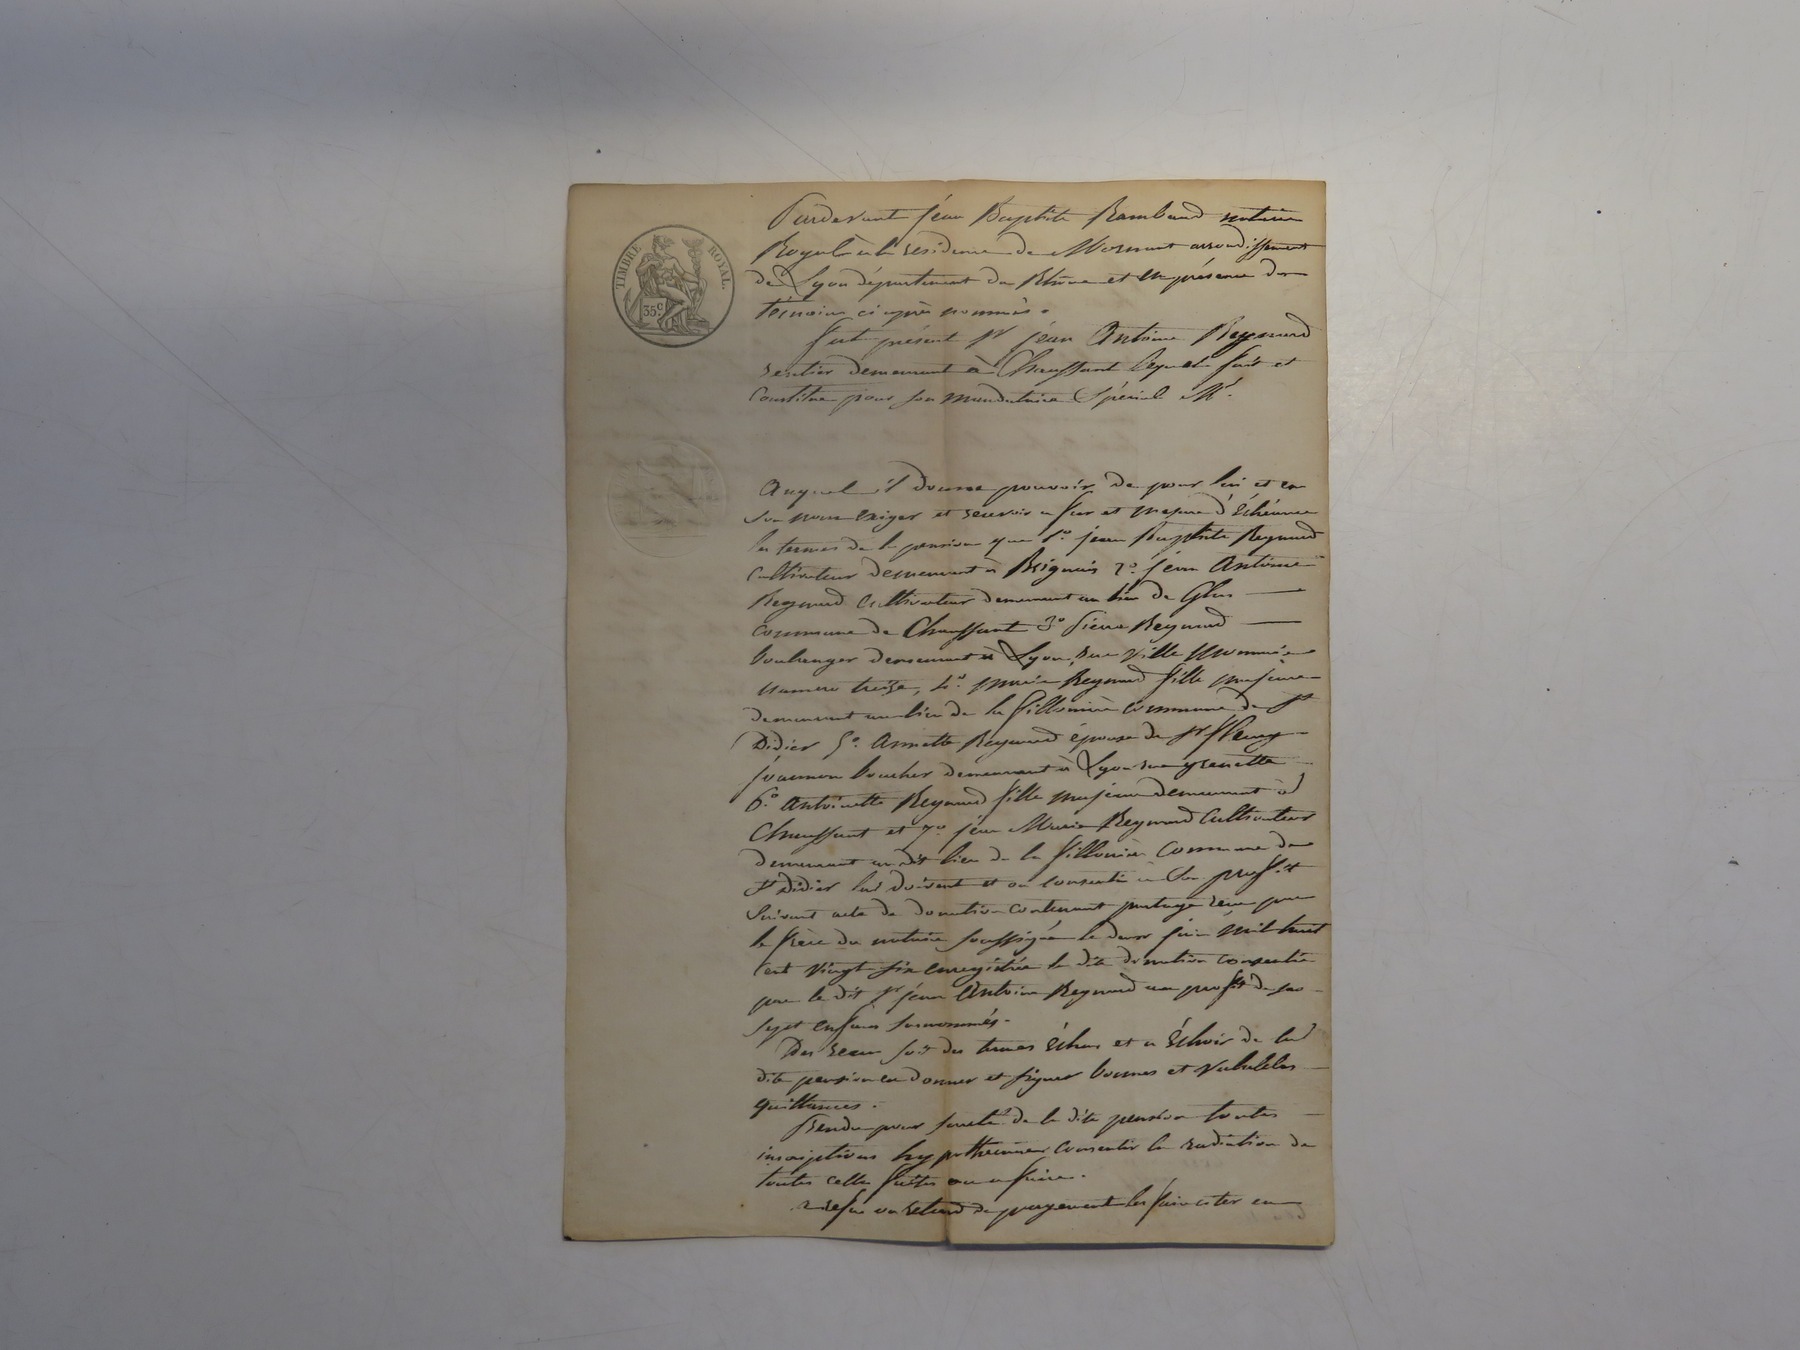 TIMBRE ROYAL.
35 C
Pardevant Jean Baptiste Rambaud notaire
Royal à la residence de Mornant arrondissement
de Lyon département du Rhône et en présence des
témoins ci après nommés.
fut présent Sr jean Antoine Reynard
rentier demeurant à Chaussant lequel fait et
Constitue pour son mandataire Spécial Mr.
Auquel il donne pouvoir de pour lui et en
son nom Exiger et recevoir a fur et mesure d'Echéance
les termes de la pension que 1o. jean Baptiste Reynard
cultivateur demeurant à Brignais 2o. jean Antoine
Reynard cultivateur demeurant au lieu de
commune de Chaussant 3o pierre Reynard
boulanger demeurant à Lyon, rue Ville
numéro treize, 4o. marie Reynard fille majeure
demeurant au lieu de la fillonière commune de St
Didier 5o. Annette Reynard épouse de Sr fleury
boucher demeurant à Lyon rue grenette
6o. Antoinette Reynard fille majeure demeurant à
Chaussant et 7o. jean Marie Reynard Cultivateur
demeurant au dit lieu de la fillonière Commune de
St Didier lui doivent et ont consentie à Son profit
Suivant acte de donation contenant partage reçu par
le frère du notaire soussigné le deux juin Mil huit
cent vingt six enregistrée la dite donation consentie
par le dit Sr jean Antoine Reynard au profit de ses
sept enfans surnommés.
Des reçus soit des termes Echus et a Echoir de la
dite pension en donner et signer bonnes et Valables
quittances.
Prendre pour sureté de la dite pension toutes
inscriptions hypothécaires consentir la radiation de
toutes celles faites ou a faire.
a refus ou retard de payement les faire citer en